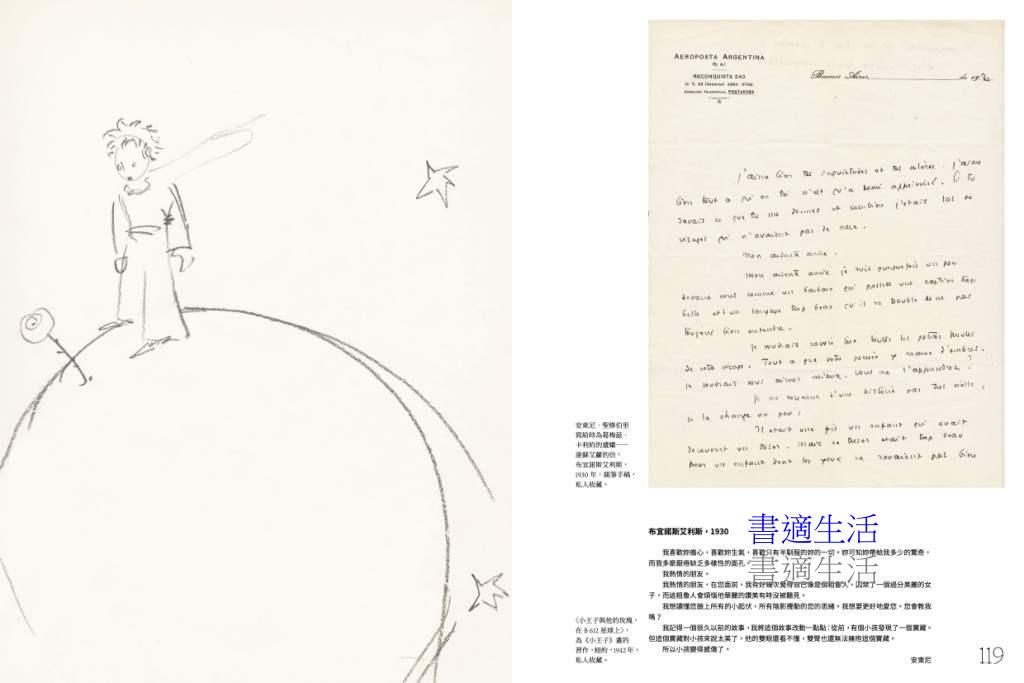 AEROPOSTA ARGENTINA
(S. A.)
RECONQUISTA 240
Buenos Aires, de 1930
J'aime bien tes inquiétudes et tes colères. J'aime
bien tout ce qui en toi n'est qu'à demi apprivoisé. Si tu
savais ce que tu me donnes et combien j'étais las de
visages qui n'avaient pas de race.
Mon ardente amie.
Mon ardente amie je suis quelquefois un peu
devant vous comme un barbare qui possède une captive trop
belle et un langage trop beau qu'il se trouble de ne pas
toujours bien entendre.
Je voudrais savoir lire toutes les petites houles
de votre visage. Tout ce que votre pensée y remue d'ombres.
Je voudrais vous aimer mieux. Vous me l'apprendrez ?
Je me souviens d'une histoire pas très vieille,
je la change un peu :
Il était une fois un enfant qui avait
découvert un trésor. Mais ce trésor était trop beau
pour un enfant dont les yeux ne savaient pas bien
安東尼．聖修伯里
寫給時為葛梅茲．
卡利約的遺孀——
康蘇艾蘿的信，
布宜諾斯艾利斯，
1930 年，親筆手稿，
私人收藏。
布宜諾斯艾利斯，1930
書適生活
我喜歡妳擔心，喜歡妳生氣，喜歡只有半馴服的妳的一切。妳可知妳帶給我多少的驚奇，
而我多麼厭倦缺乏多樣性的面孔。
書適生活
我熱情的朋友。
我熱情的朋友，在您面前，我有好幾次覺得自己像是個粗魯人，囚禁了一個過分美麗的女
子，而這粗魯人會煩惱他華麗的讚美有時沒被聽見。
我想讀懂您臉上所有的小起伏，所有陰影攪動的您的思緒。我想要更好地愛您。您會教我
嗎？
我記得一個很久以前的故事，我將這個故事改動一點點：從前，有個小孩發現了一個寶藏。
但這個寶藏對小孩來說太美了，他的雙眼還看不懂，雙臂也還無法擁抱這個寶藏。
所以小孩變得感傷了。
安東尼
〈小王子與他的玫瑰，
在 B 612 星球上〉，
為《小王子》畫的
習作，紐約，1942 年，
私人收藏。
119